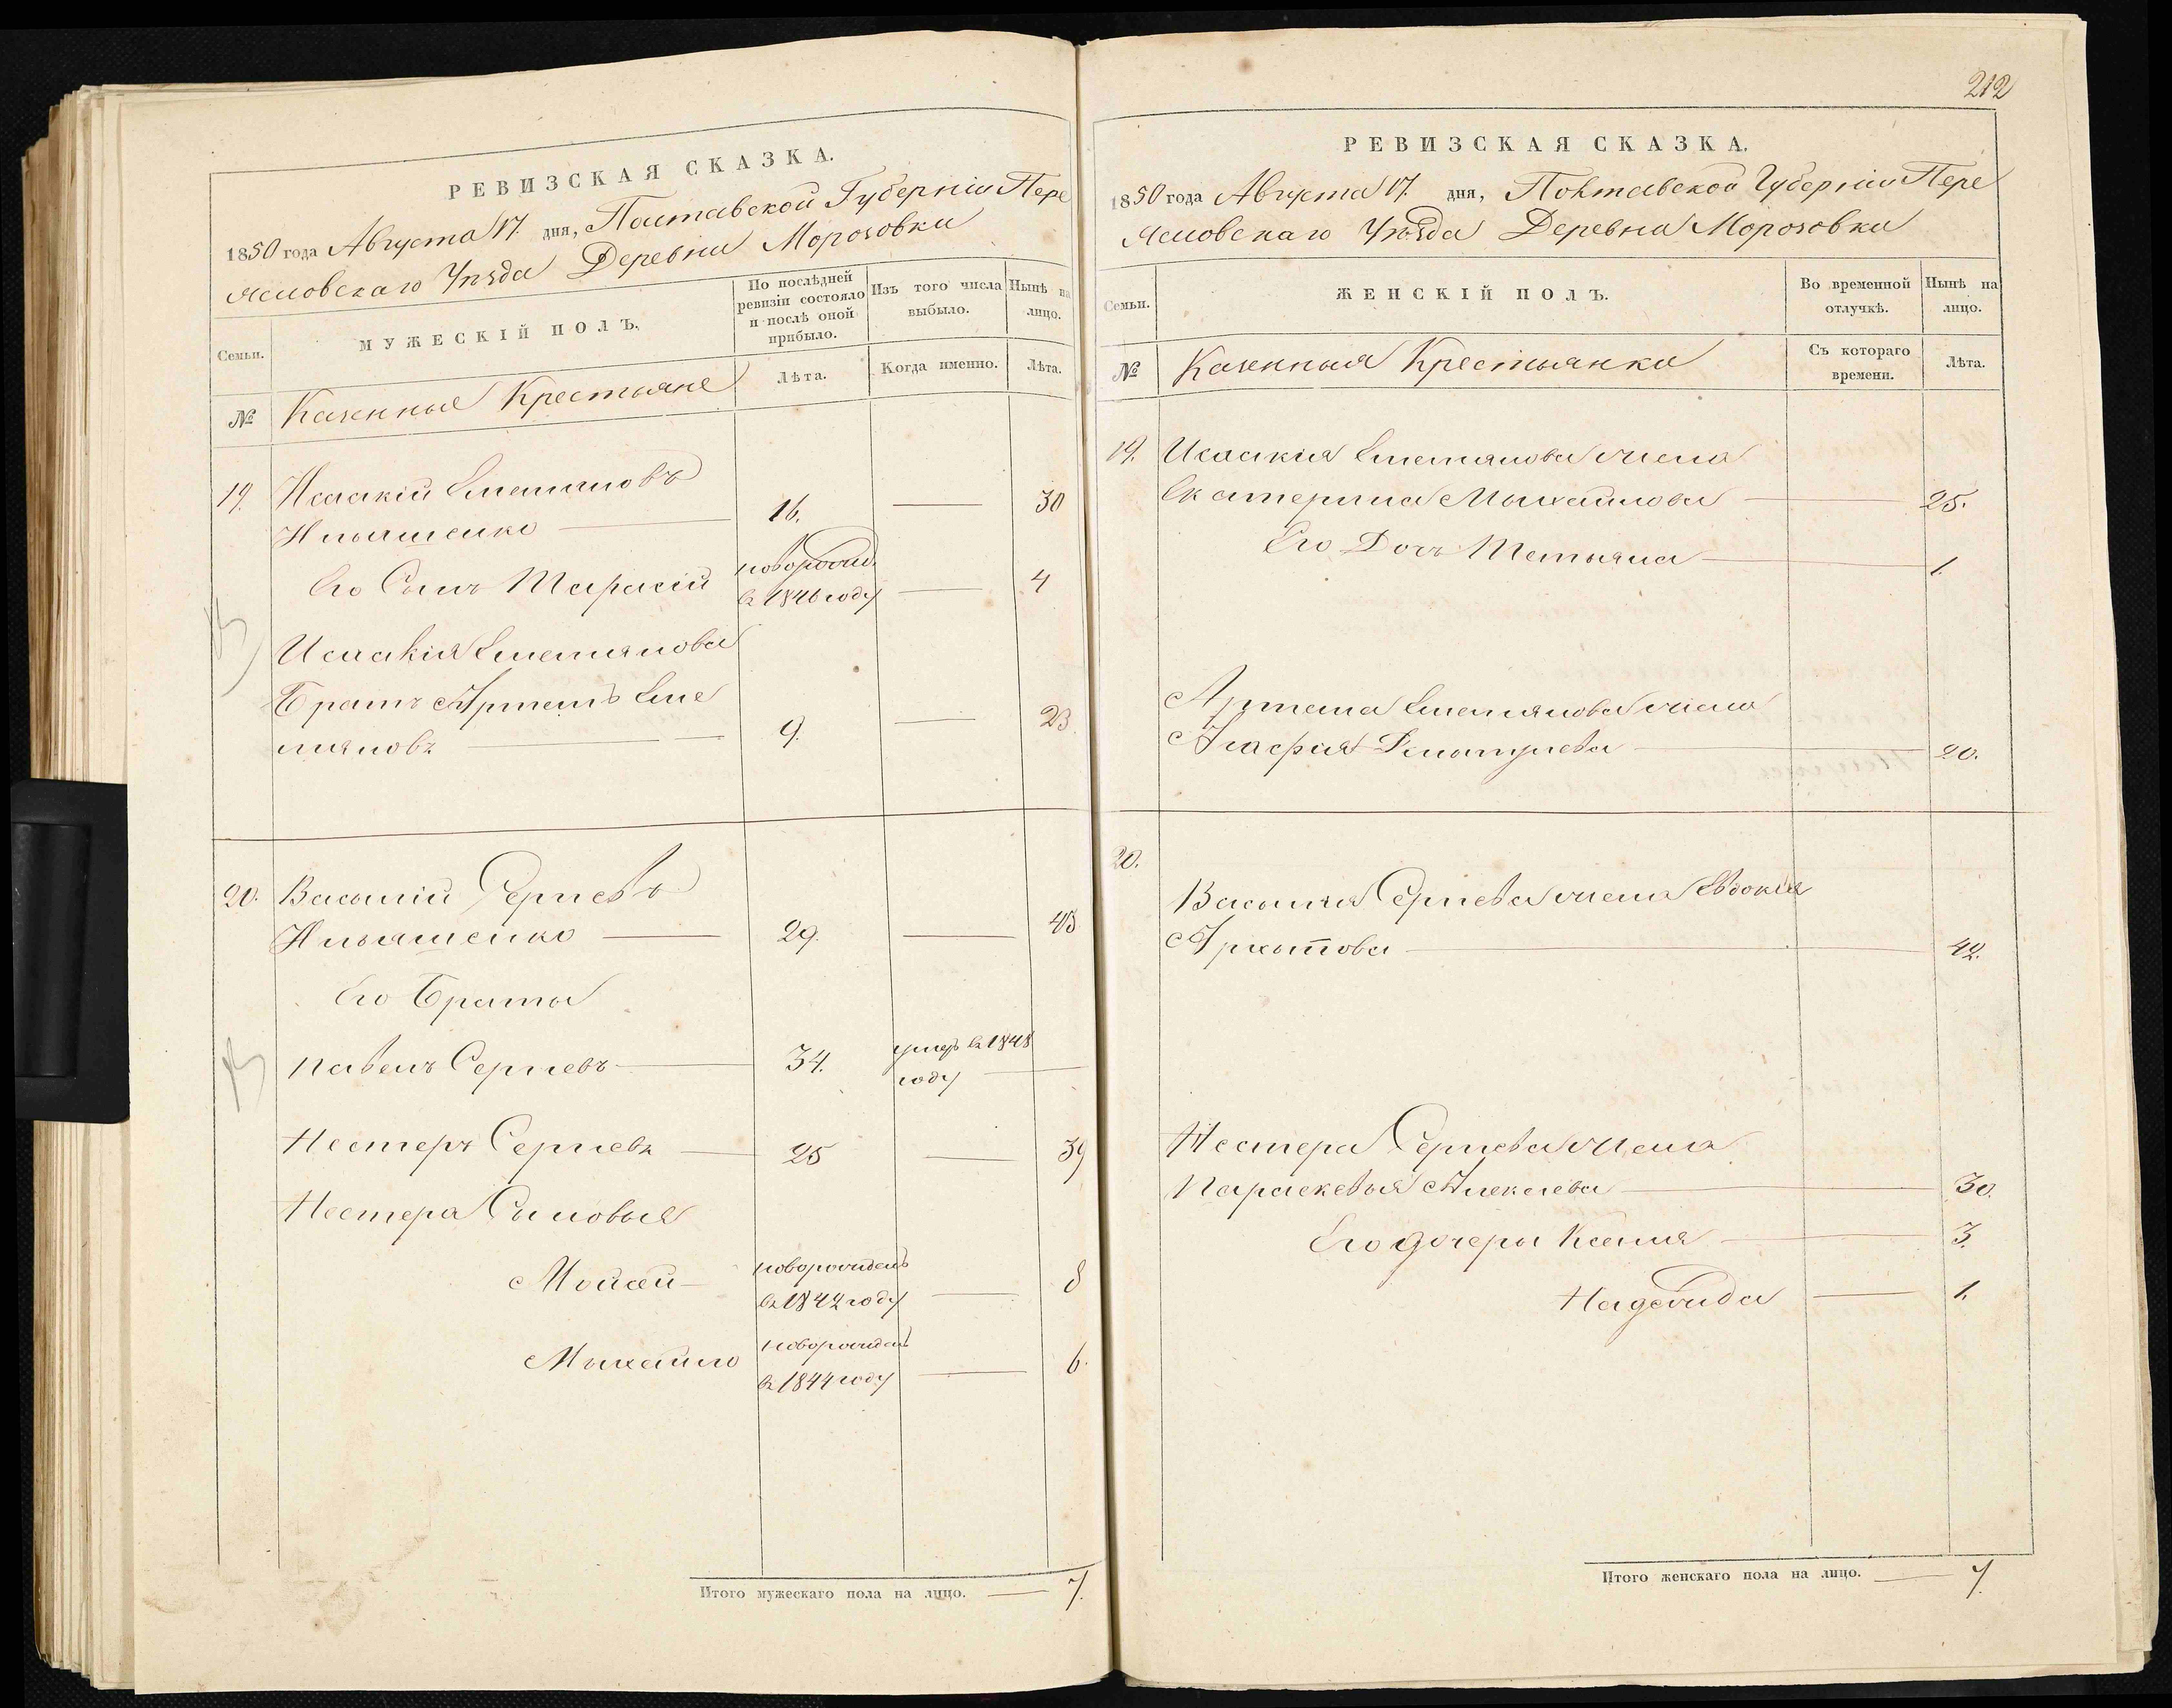 РЕВИЗСКАЯ СКАЗКА.
1850 года Августа 17. дня, Полтавской Губерніи Пере
яславскаго Уѣзда Деревни Морозовки
Семьи.
МУЖЕСКІЙ ПОЛЪ.
По послѣдней
ревизіи состояло
и послѣ оной
прибыло.
Изъ того числа
выбыло.
Нынѣ на
лицо.
№
Казенные Крестьяне
Лѣта.
Когда именно.
Лѣта.
19. Исаакій Емельяновъ
Ильяшенко 16. 30
Его Сынъ Тарасій новорожд.
въ 1846 году 4
Исаакія Емельянова
Братъ Артемъ Еме
льяновъ 9. 23.
20. Василій Сергіевъ
Ильяшенко 29. 43
Его Братья
Павелъ Сергіевъ 34. умеръ въ 1848
году
Нестеръ Сергіевъ 25 39
Нестера Сыновья
Мойсей новорожденъ
въ 1842 году 8
Михайло новорожденъ
въ 1844 году 6.
Итого мужескаго пола на лицо. 7.
212
РЕВИЗСКАЯ СКАЗКА.
1850 года Августа 17. дня, Полтавской Губерніи Пере
яславскаго Уѣзда Деревни Морозовки
Семьи.
ЖЕНСКІЙ ПОЛЪ.
Во временной
отлучкѣ.
Нынѣ на
лицо.
№
Казенныя Крестьянки
Съ котораго
времени.
Лѣта.
19. Исаакія Емельянова жена
Екатерина Михайлова 25.
Его Дочь Татьяна 1.
Артема Емельянова жена
Агафія 20.
20.
Василія Сергіева жена Евдокія
Архипова 42.
Нестера Сергіева жена
Параскевія Алексѣева 30.
Его дочери Ксенія 3.
Надежда 1.
Итого женскаго пола на лицо. 7.